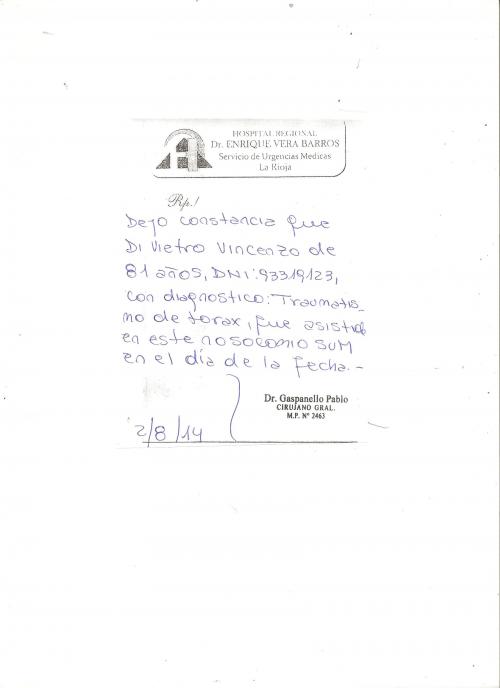 HOSPITAL REGIONAL
Dr. ENRIQUE VERA BARROS
Servicio de Urgencias Medicas
La Rioja
Rp./
Dejo constancia que
Di Vietro Vincenzo de
81 años, DNI: 93319123,
con diagnostico: Traumatis_
mo de torax, fue asistido
en este nosocomio SUM
en el día de la fecha.-
Dr. Gaspanello Pablo
CIRUJANO GRAL.
M.P. Nº 2463
2/8/14